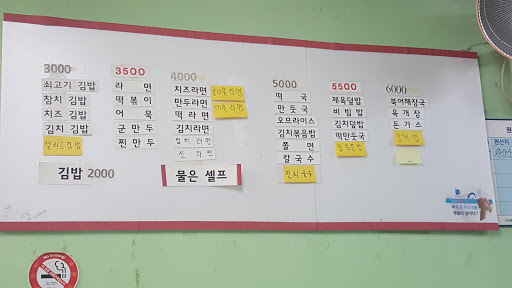 3000
쇠고기 김밥
참치 김밥
치즈 김밥
김치 김밥
샐러드김밥
김밥 2000
3500
라 면
떡볶이
어 묵
군만두
찐만두
4000
치즈라면
만두라면
떡라면
김치라면
참치라면
신라면
물은 셀프
5000
떡 국
만둣국
오므라이스
김치볶음밥
쫄 면
칼국수
잔치국수
5500
제육덮밥
비빔밥
김치덮밥
떡만둣국
6000
북어해장국
육개장
돈가스
원산지